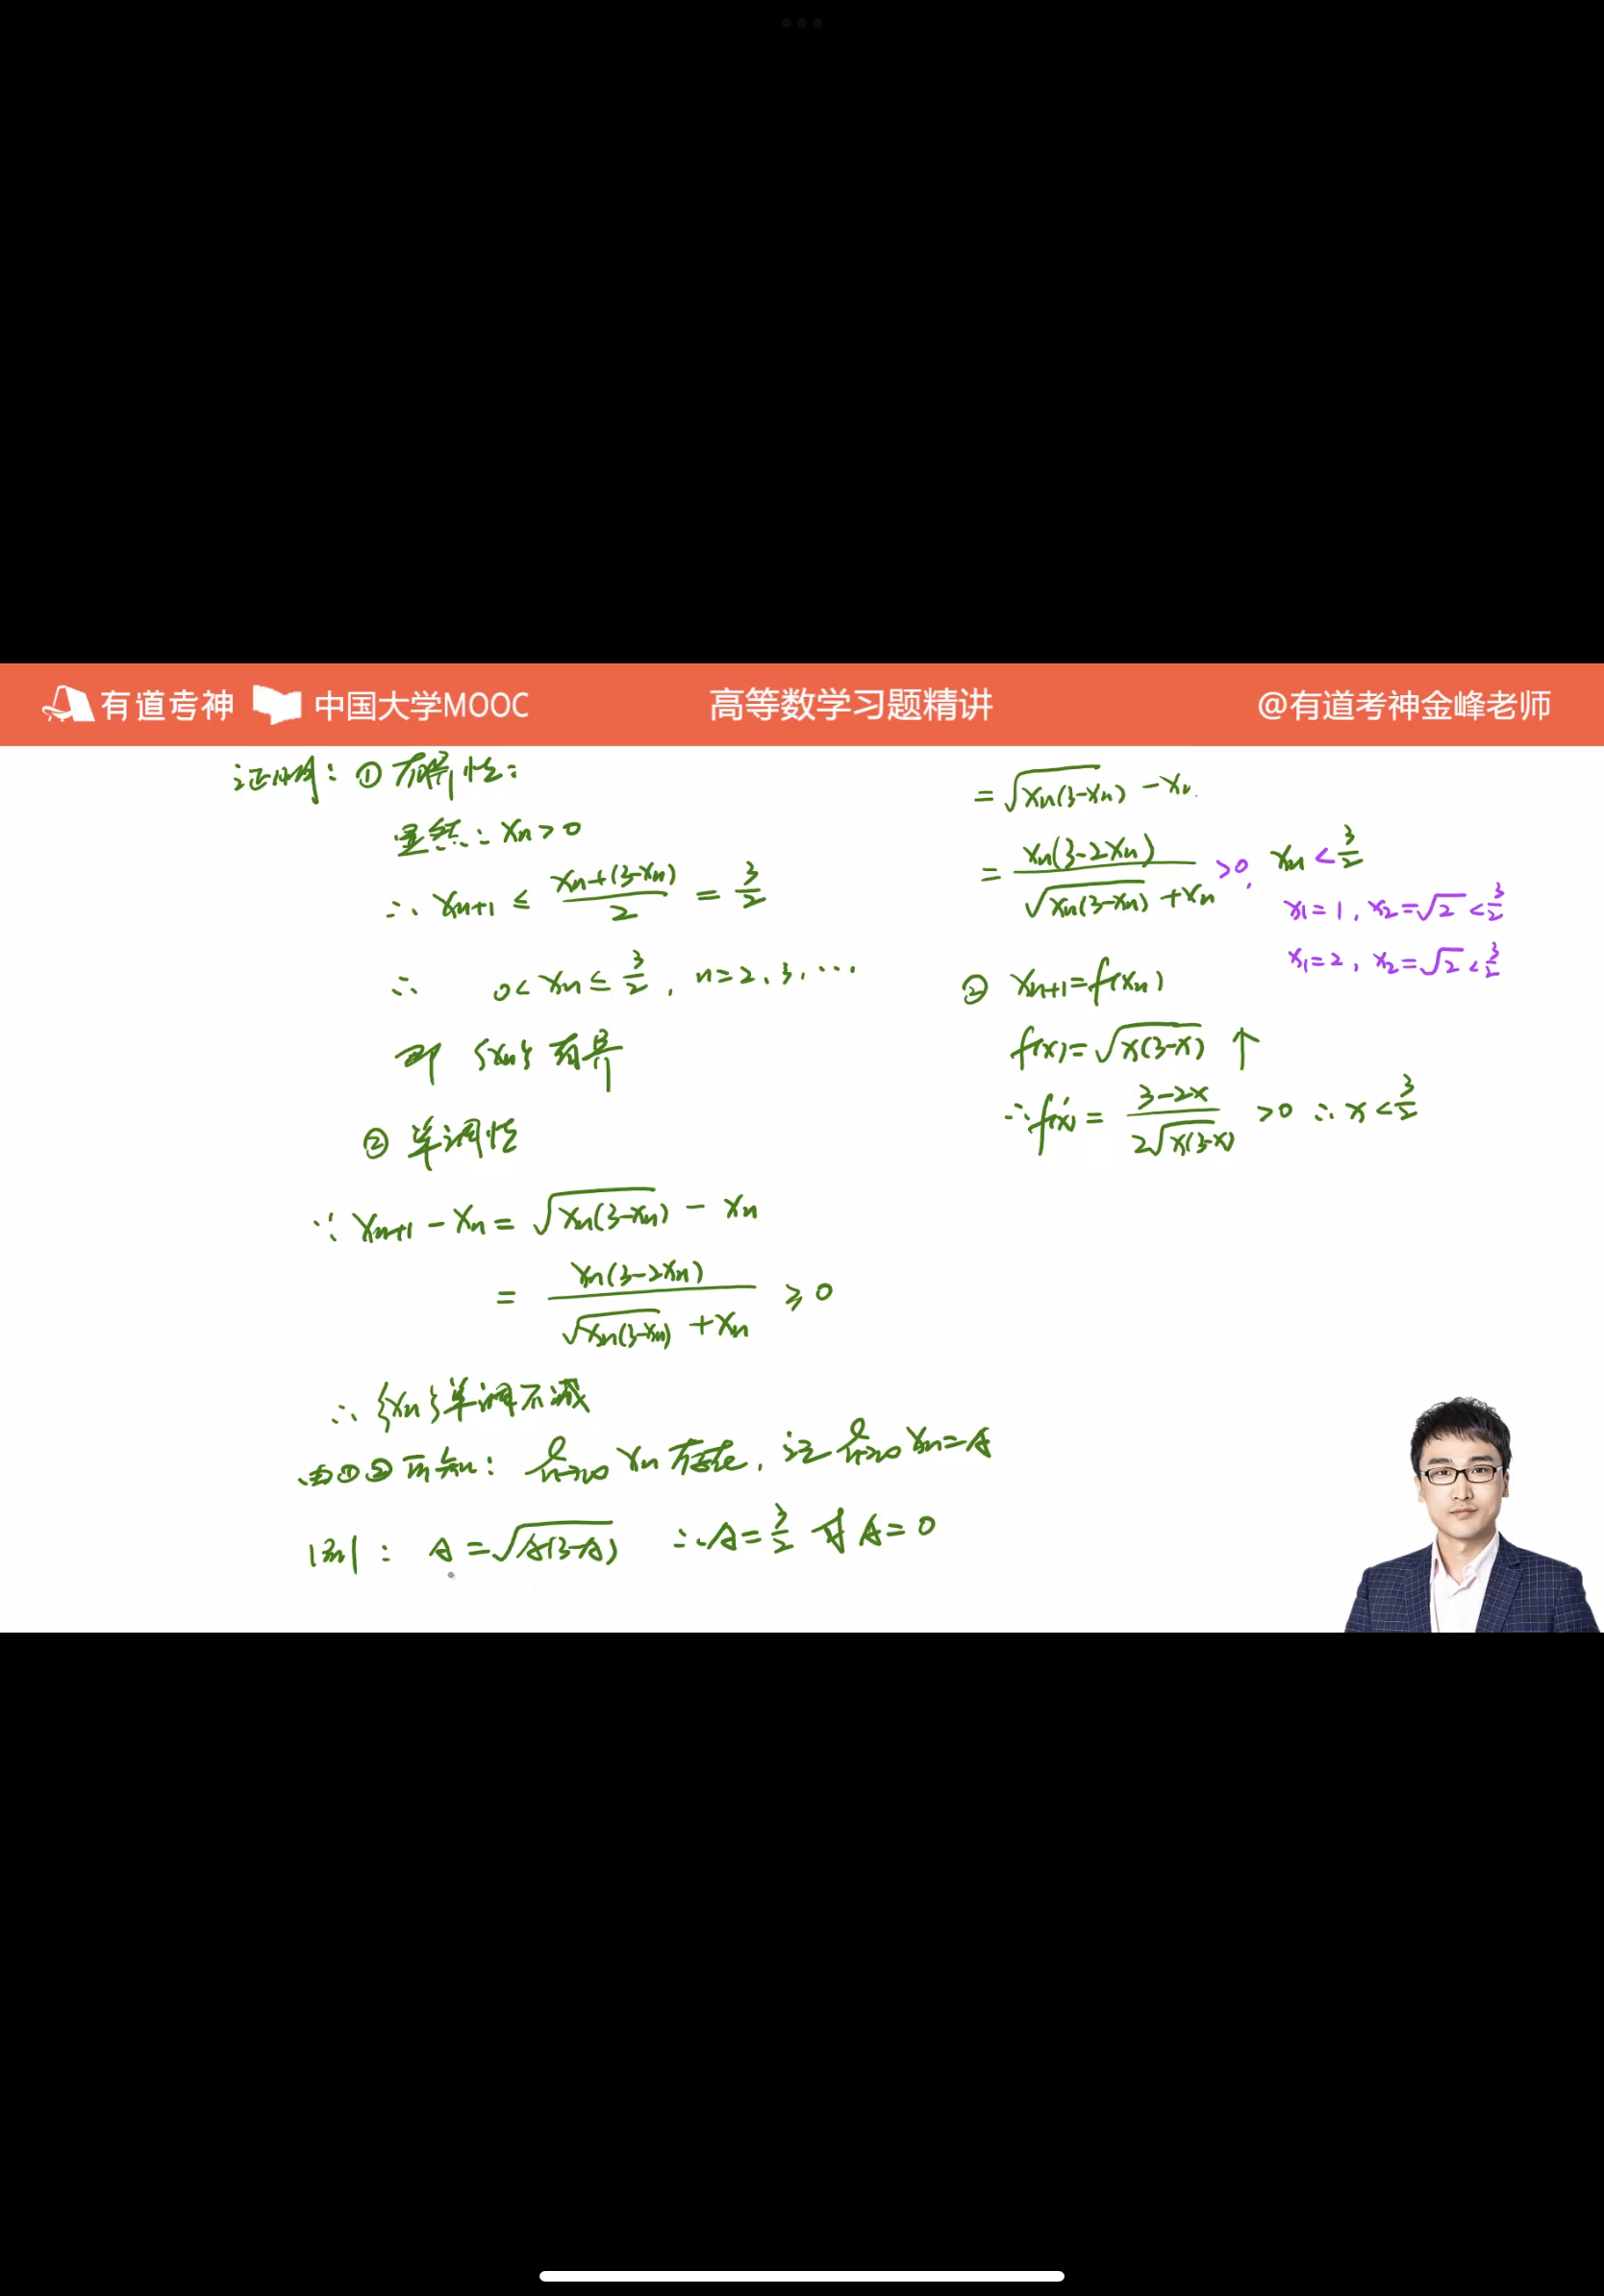 有道考神 中国大学MOOC 高等数学习题精讲 @有道考神金峰老师
证明：① 有界性：
显然：xn > 0
∴ xn+1 ≤ (xn+(3-xn))/2 = 3/2
∴ 0 < xn ≤ 3/2 , n=2、3、…
即 {xn} 有界
② 单调性
∵ xn+1 - xn = √(xn(3-xn)) - xn
= xn(3-2xn)/(√(xn(3-xn)) + xn) ≥ 0
∴ {xn} 单调不减
由①②可知： lim n→∞ xn 存在，记 lim n→∞ xn = A
则： A = √(A(3-A)) ∴ A = 3/2 或 A = 0
= √(xn(3-xn)) - xn
= xn(3-2xn)/(√(xn(3-xn)) + xn) >0, xn < 3/2
x1=1, x2=√2 < 3/2
x1=2, x2=√2 < 3/2
② xn+1 = f(xn)
f(x) = √(x(3-x)) ↑
∴ f'(x) = (3-2x)/(2√(x(3-x))) > 0 ∴ x < 3/2